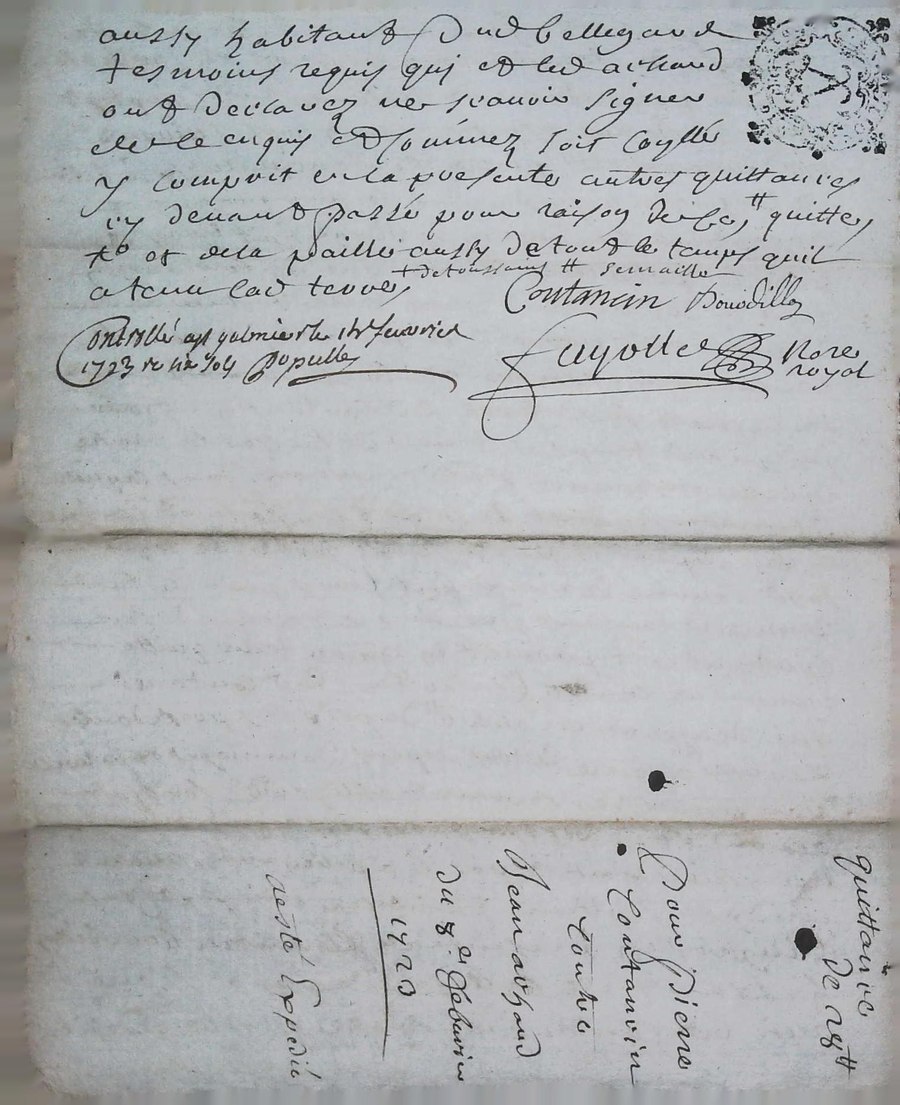 aussy habitant dud bellegarde
tesmoins requis qui et led achard
ont declarez ne scavoir signer
de ce enquis et sommez soit
y comprit en la presente autres quittances
cy devant passé pour raison de ces quittes
et de la paille aussy de tout le temps quil
a tenu lad terre
Coutancin
Controllé a st galmier le fevrier
1723
Fayolle Nore
royal
quittance
De 28tt
Pour Pierre
Coutancin
Contre
Jean achard
du 8e febvrier
1723
a esté Expedié